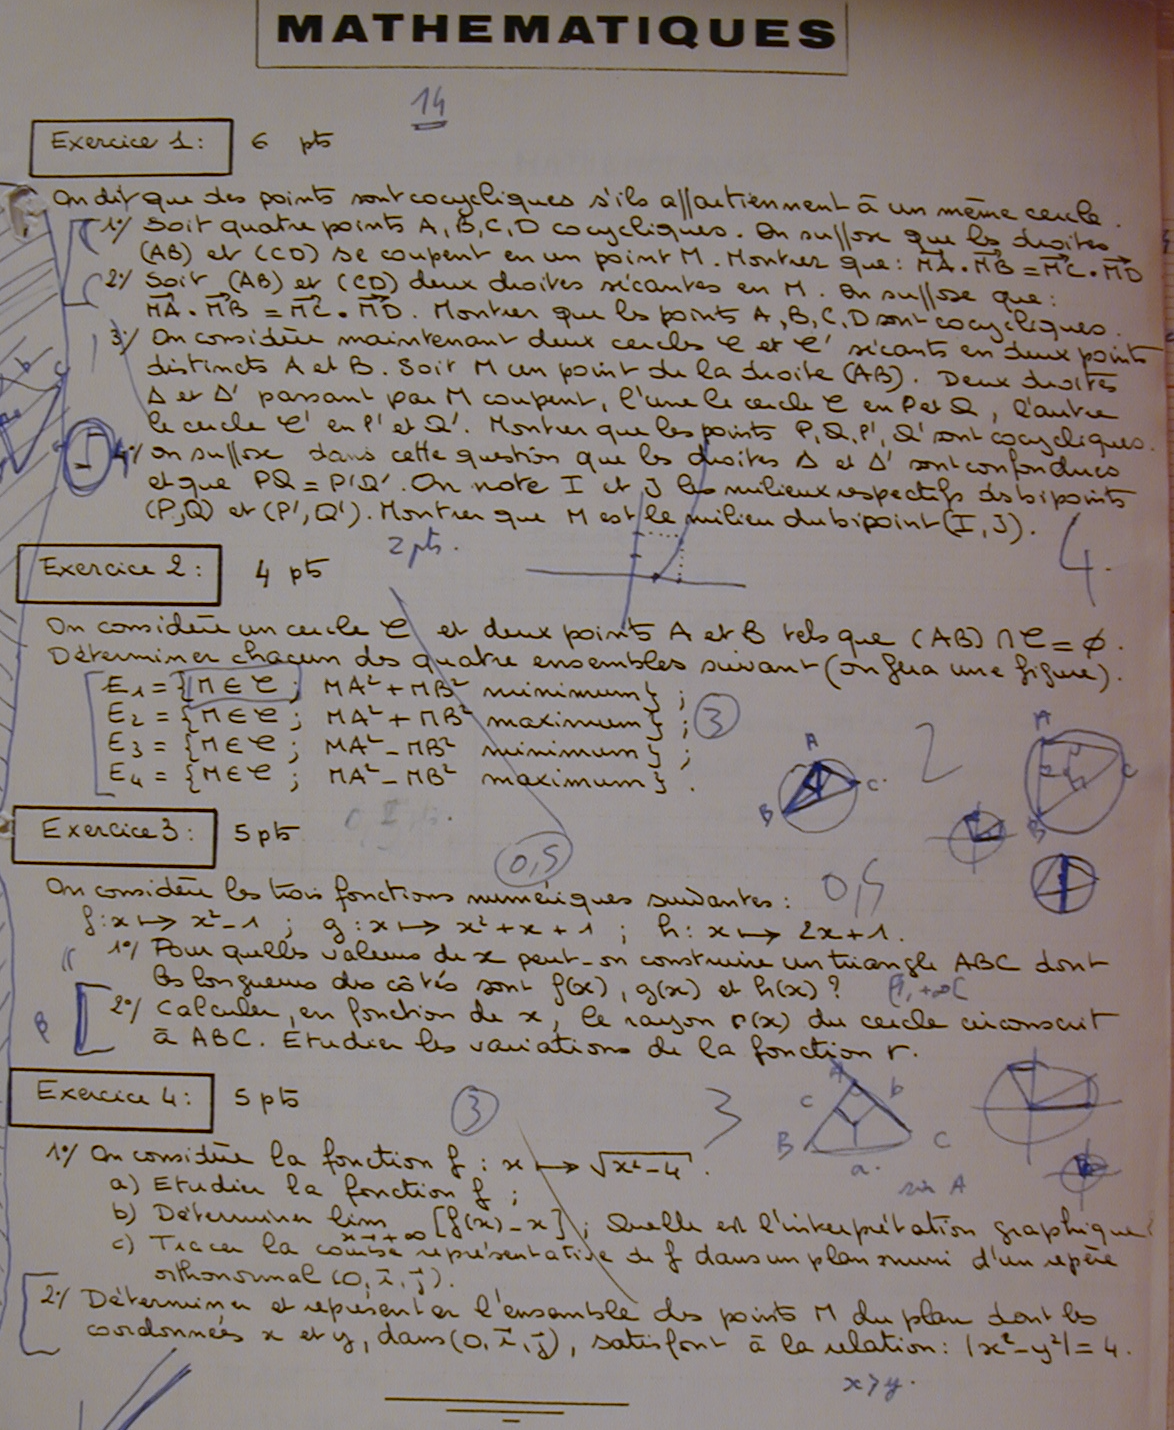 MATHEMATIQUES
14
Exercice 1: 6 pts
On dit que des points sont cocycliques s'ils appartiennent à un même cercle.
1°/ Soit quatre points A, B, C, D cocycliques. On suppose que les droites
(AB) et (CD) se coupent en un point M. Montrer que: MA⃗ . MB⃗ = MC⃗ . MD⃗
2°/ Soit (AB) et (CD) deux droites sécantes en M. On suppose que:
MA⃗ . MB⃗ = MC⃗ . MD⃗. Montrer que les points A, B, C, D sont cocycliques.
3°/ On considère maintenant deux cercles C et C' sécants en deux points
distincts A et B. Soit M un point de la droite (AB). Deux droites
Δ et Δ' passant par M coupent, l'une le cercle C en P et Q, l'autre
le cercle C' en P' et Q'. Montrer que les points P, Q, P', Q' sont cocycliques.
4°/ On suppose dans cette question que les droites Δ et Δ' sont confondues
et que PQ = P'Q'. On note I et J les milieux respectifs des bipoints
(P,Q) et (P',Q'). Montrer que M est le milieu du bipoint (I, J).
2 pts.
4.
Exercice 2: 4 pts
On considère un cercle C et deux points A et B tels que (AB) ∩ C = ∅.
Déterminer chacun des quatre ensembles suivant (on fera une figure).
E1 = {M ∈ C ; MA² + MB² minimum} ;
E2 = {M ∈ C ; MA² + MB² maximum} ;
3
E3 = {M ∈ C ; MA² - MB² minimum} ;
E4 = {M ∈ C ; MA² - MB² maximum} .
2
A
B
C
A
B
C
Exercice 3: 5 pts
0,5
0,5
On considère les trois fonctions numériques suivantes:
f: x ↦ x² - 1 ; g: x ↦ x² + x + 1 ; h: x ↦ 2x + 1.
1°/ Pour quelles valeurs de x peut-on construire un triangle ABC dont
les longueurs des côtés sont f(x), g(x) et h(x) ? ]1, +∞[
2°/ Calculer, en fonction de x, le rayon r(x) du cercle circonscrit
à ABC. Etudier les variations de la fonction r.
Exercice 4: 5 pts
3
3
A
c
b
B
C
a.
sin A
1°/ On considère la fonction f : x ↦ √(x²-4) .
a) Etudier la fonction f ;
b) Déterminer lim x→+∞ [f(x) - x] ; Quelle est l'interprétation graphique?
c) Tracer la courbe représentative de f dans un plan muni d'un repère
orthonormal (O, i⃗, j⃗).
2°/ Déterminer et représenter l'ensemble des points M du plan dont les
coordonnées x et y, dans (O, i⃗, j⃗), satisfont à la relation: |x² - y²| = 4.
x > y.